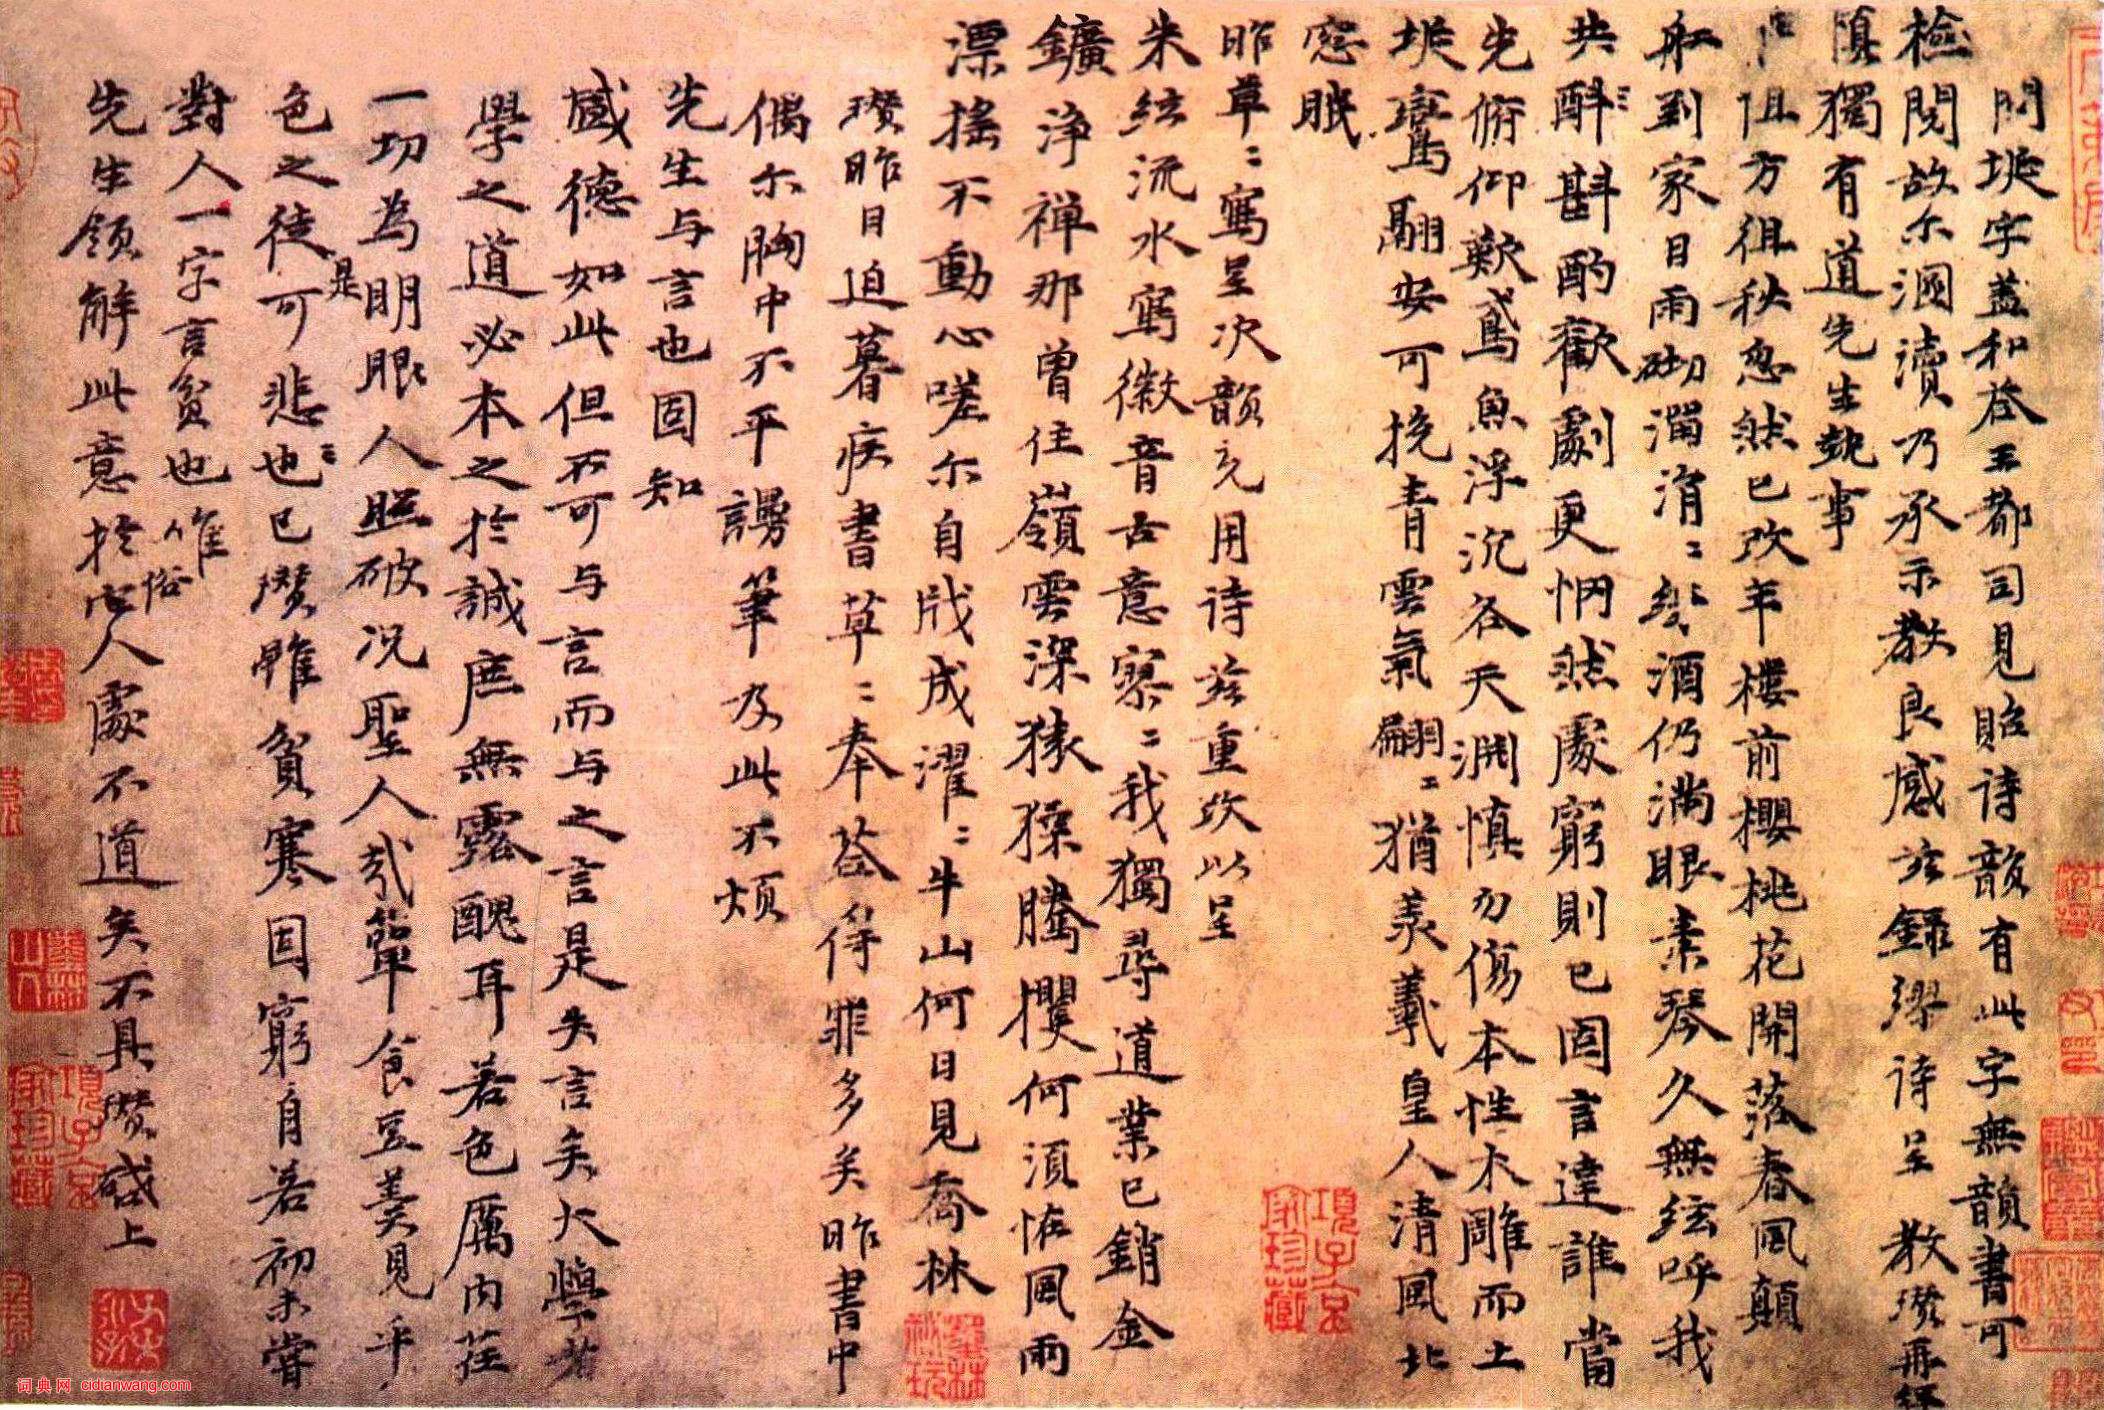 問垗字盖和答王都司見貽诗韻有此字無韻書可
檢閱故尔溷瀆乃承示教良感玆錄謬诗呈 教瓚再
慎獨有道先生執事
阻方徂秋忽然已改年樓前櫻桃花開落春風顛
舡到家日雨砌潤涓〻綠酒仍满眼素琴久無絃呼我
共醉〻斟酌歡劇更惘然處窮則已固言達誰當
先俯仰歎鳶魚浮沉各天渊慎勿傷本性木雕而土
垗鴻鵠翮安可挽青雲氣翩〻猶羡羲皇人清風北
窓眠
昨草〻寫呈次韻乞用诗玆重改以呈
朱絃流水寫徽音古意寥〻我獨尋道業已銷金
鑛浄禅那曽住嶺雲深猿猱騰攫何須恠風雨
漂搖不動心嗟尔自戕成濯〻牛山何日見喬林
瓚昨日迫暮疾書草〻奉荅得罪多矣昨書中
偶尔胸中不平謾筆及此不煩
先生与言也固知
盛德如此但不可与言而与之言是失言矣大學者
學之道必本之於誠庶無露醜耳若色厲内荏
一切為明眼人照破况聖人哉簞食豆羹見乎
色之徒可是悲也〻已瓚雖貧寒固窮自若初未嘗
對人一字言貧也唯
先生領解此意於俗人處不道矣不具瓚啟上
項子京家珍藏
词典网 cidianwang.com